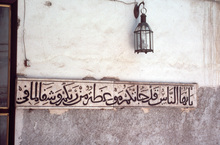 يا أيها الناس قد جاءتكم موعظة من ربكم وشفاء لما في